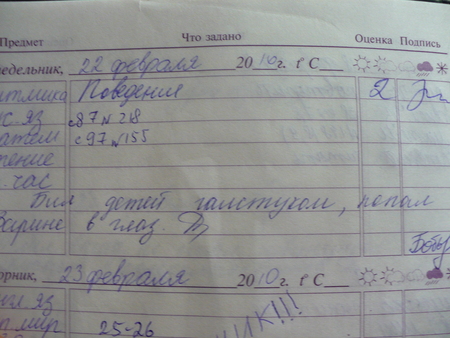 Предмет Что задано Оценка Подпись
недельник, 22 февраля 2010г. t° С
итмика Поведения 2
с. яз с87 №218
атем с97 №155
тение
. час
Бил детей галстуком, попал
Зарине в глаз.
орник, 23 февраля 2010г. t° С
яз
мир 25-26
ИК!!!